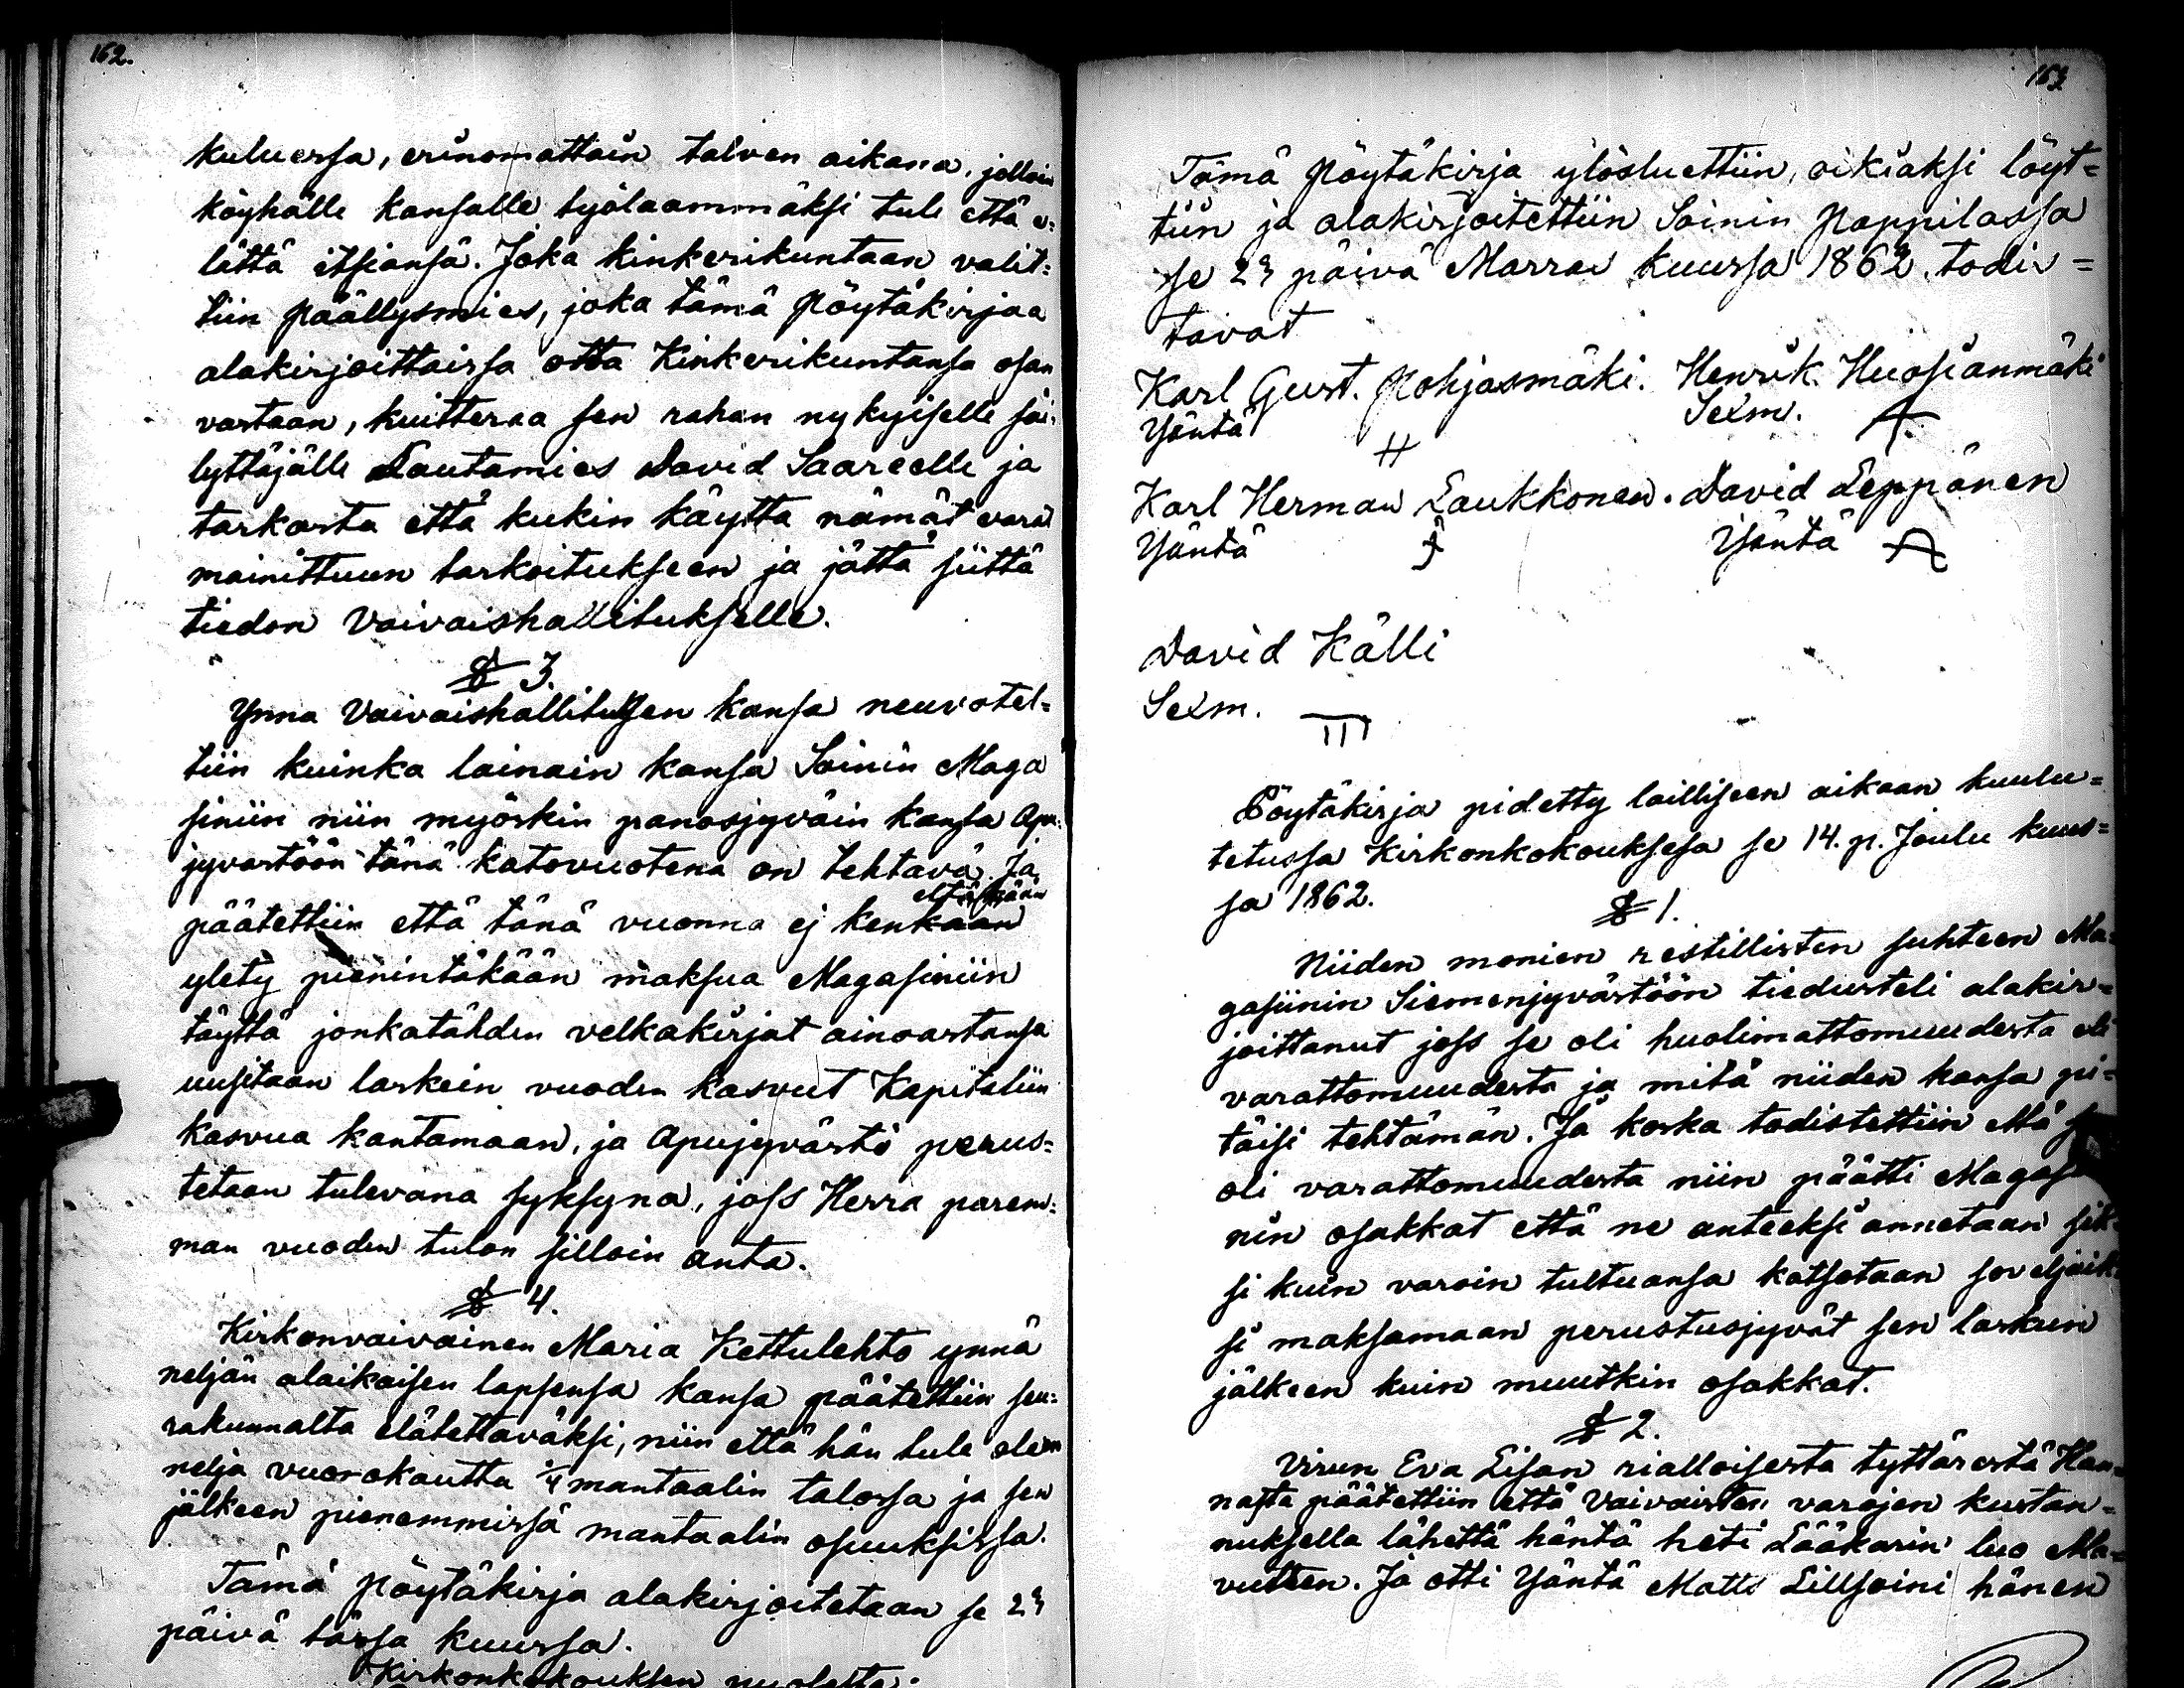 162.
kuluessa, erinomattain talven aikana, jolloin
köyhälle kansalle työlaammäksi tule että e-
lättä itsiansä. Joka kinkerikuntaan valit-
tiin päällysmies, joka tämä pöytäkirjaa
alakirjoittaissa otta Kinkerikuntansa osan
vastaan, kuitteraa sen rahan nykyiselle säi-
lyttäjälle Lautamies David Saareelle ja
tarkasta että kukin käyttä nämät varat
mainittuun tarkoitukseen ja jättä siittä
tiedon Vaivaishallitukselle.
§ 3.
Ynna Vaivaishallituksen kansa neuvotel-
tiin kuinka lainain kansa Soinin Maga
siniin niin myöskin panosjyväin kansa Apu-
jyvästöön tänä katovuotena on tehtävä. Ja
eltäkään
päätettiin että tänä vuonna ej kenkään
ylety pienintäkään maksua Magasiniin
täyttä jonkatähden velkakirjat ainoastansa
uusitaan laskein vuoden kasvut Kapitaliin
kasvua kantamaan, ja Apujyvästö perus-
tetaan tulevana syksynä, joss Herra parem-
man vuoden tulon silloin anta.
§ 4.
Kirkonvaivainen Maria Kettulehto ynnä
neljän alaikaisen lapsensa kansa päätettiin seu-
rakunnalta elätettäväksi, niin että hän tule olem
nelja vuorokautta 1/4 mantaalin talossa ja sen
jälkeen pienemmissä mantaalin osuuksissa.
Tämä pöytäkirja alakirjoitetaan se 23
päivä tässä kuussa.
Kirkonkokouksen puolesta:
163
Tämä pöytäkirja ylösluettiin, oikiaksi löyt-
tiin ja alakirjoitettiin Soinin Pappilassa
se 23 päivä Marras kuussa 1862. todis-
tavat
Karl Gust. Pohjasmäki. Henrik Huosianmäki
Yäntä H Sexm.
Karl Herman Laukkonen. David Leppänen
Yäntä Yäntä
David Källi
Sexm.
Pöytäkirja pidetty lailliseen aikaan kuulu-
tetussa Kirkonkokouksesa se 14. p. Joulu kuus-
sa 1862.
§ 1.
Niiden monien restillisten suhteen Ma-
gasiinin Siemenjyvästöön tiedusteli alakir-
joittanut joss se oli huolimattomuudesta eli
varattomuudesta ja mitä niiden kansa pi-
täisi tehtämän. Ja koska todistettiin että
oli varattomuudesta niin päätti
nin osakkat että ne anteeksi annetaan sik-
si kuin varoin tultuansa katsotaan soveljaik-
si maksamaan perustusjyvät sen laskuin
jälkeen kuin muutkin osakkat.
§ 2.
Virun Eva Lisan rialloisesta tyttärestä Han-
nasta päätettiin että Vaivaisten varojen kustan-
nuksella lähettä häntä heti Lääkärin luo
Ja otti Yäntä Matts Lillsoini hänen